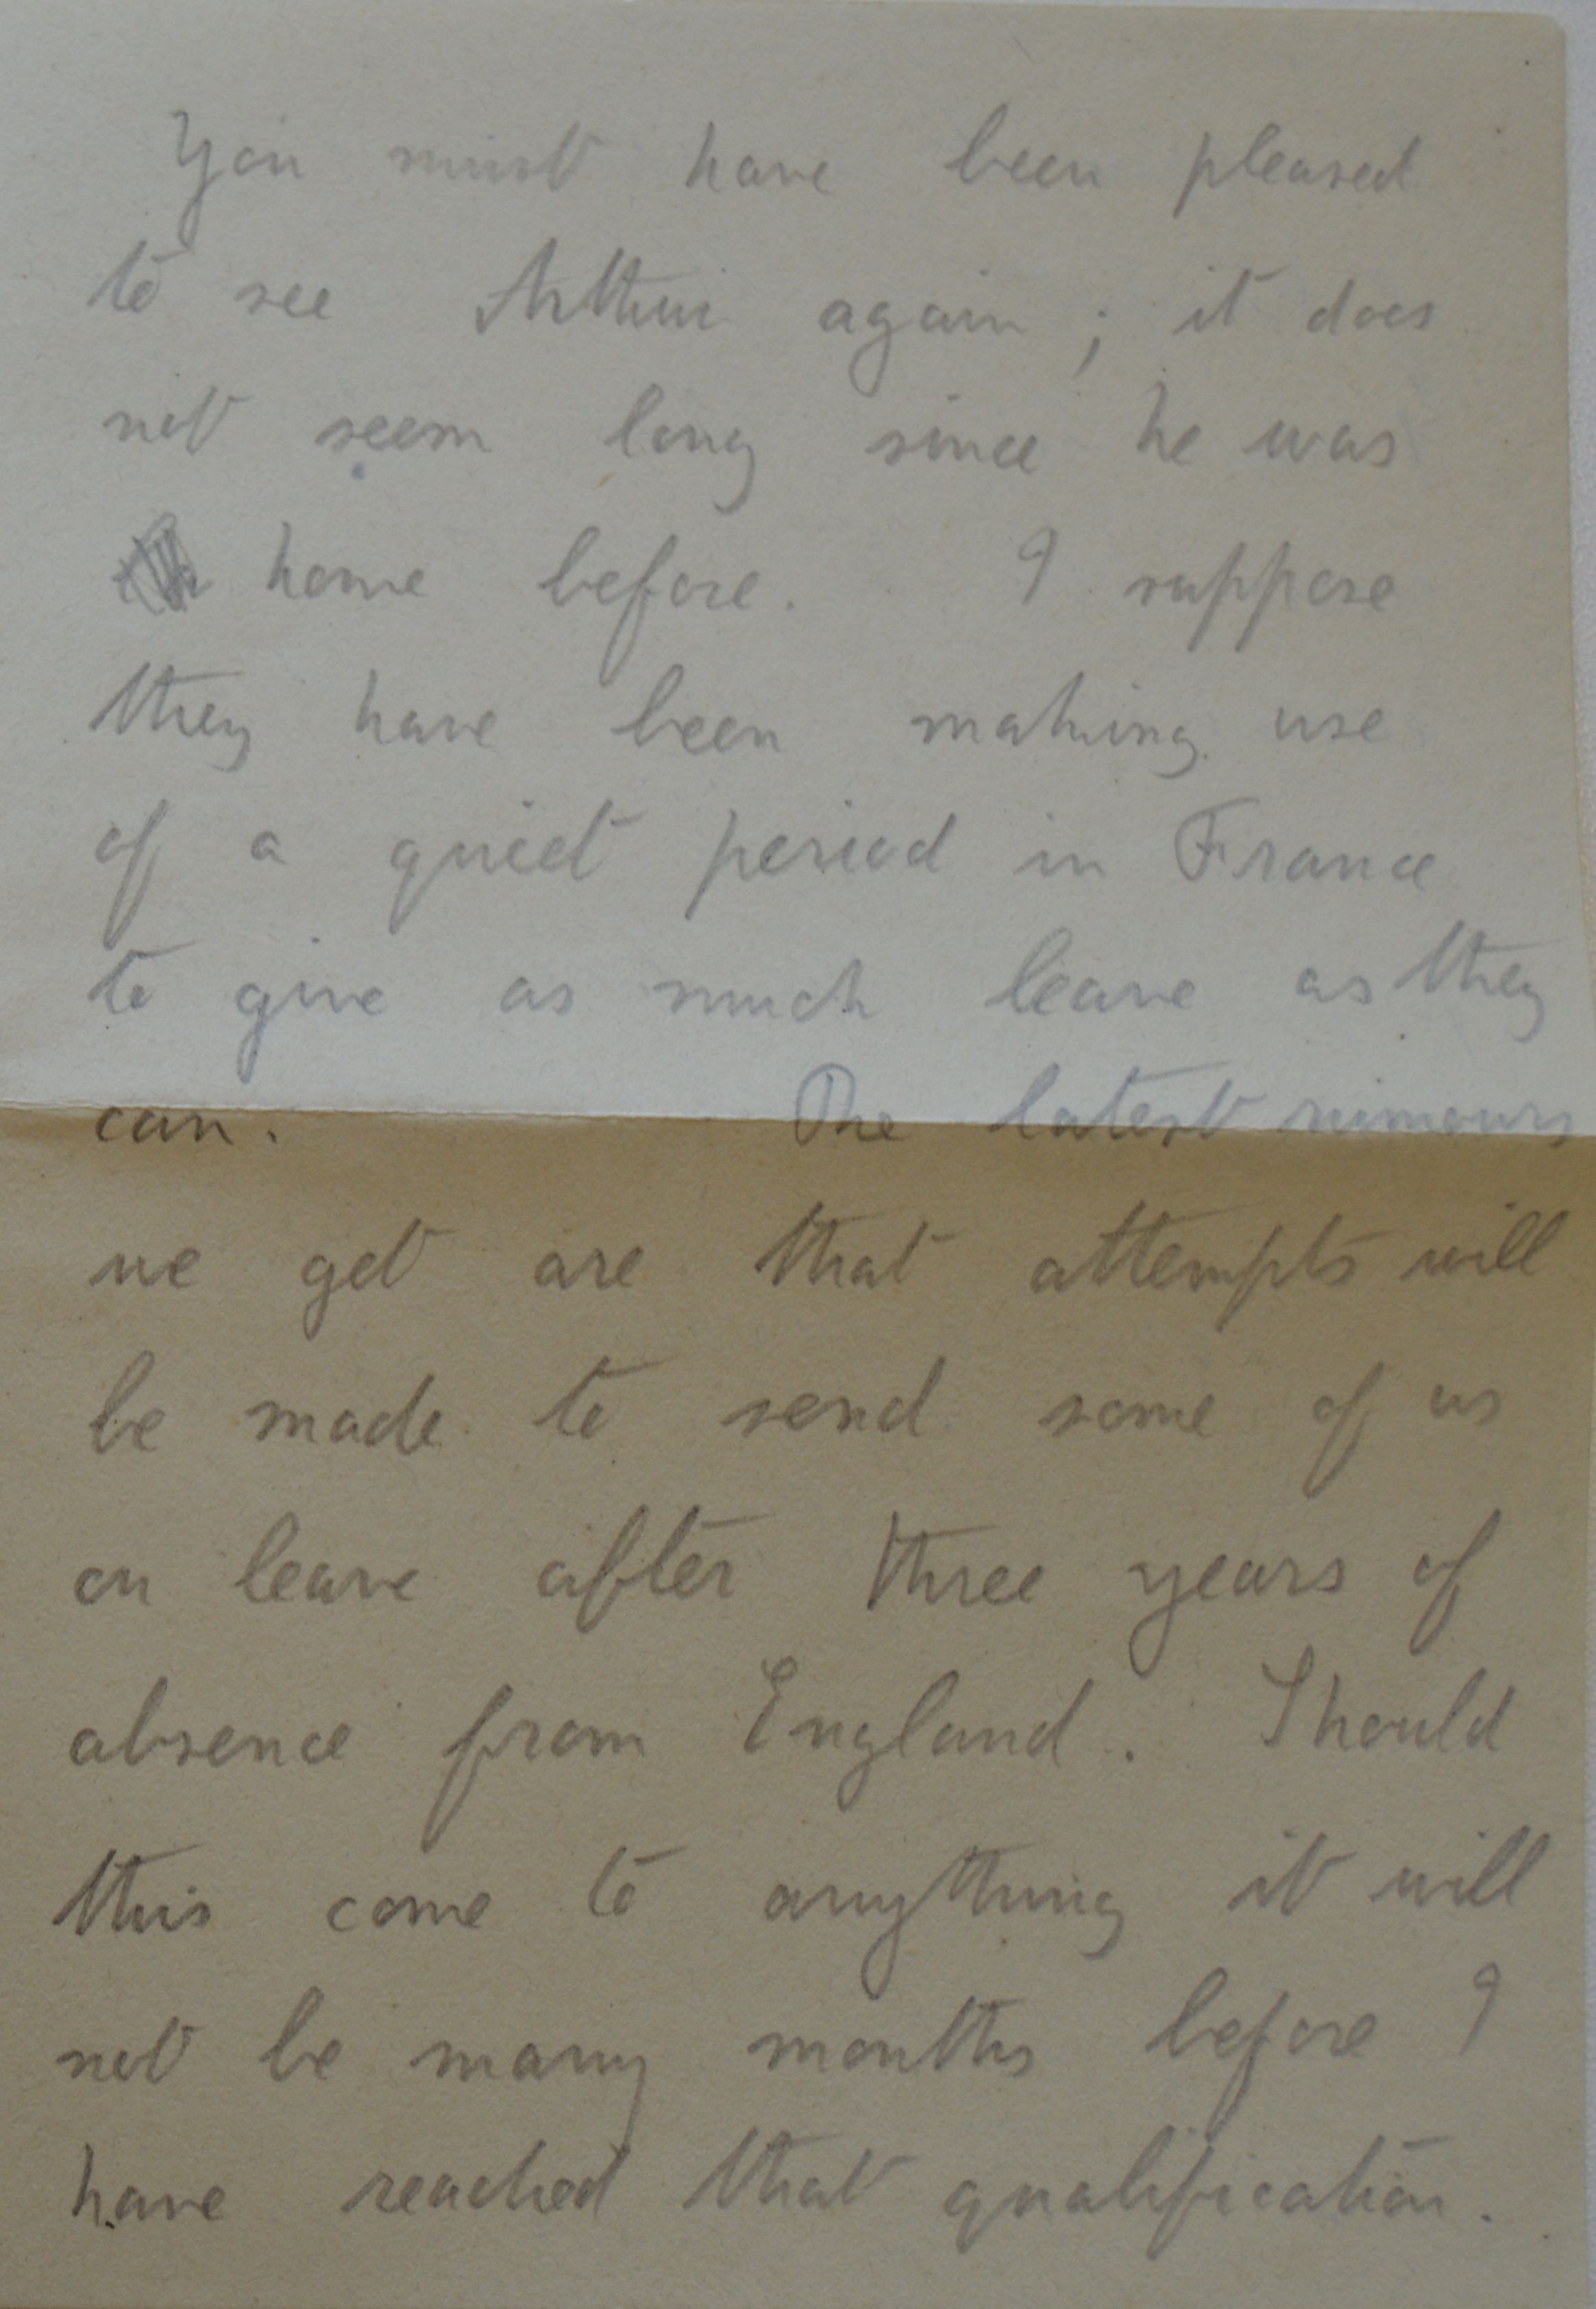 You must have been pleased
to see Arthur again ; it does
not seem long since he was
home before. I suppose
they have been making use
of a quiet period in France
to give as much leave as they
can. The latest rumours
we get are that attempts will
be made to send some of us
on leave after three years of
absence from England. Should
this come to anything it will
not be many months before I
have reached that qualification.